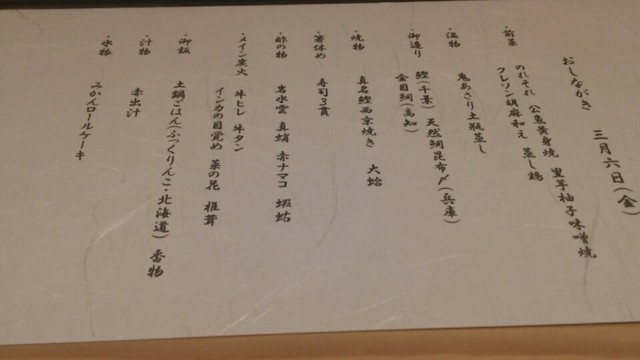 三月六日(金)
おしながき
・前菜
のれそれ 公魚黄身焼 里芋柚子味噌焼
クレソン胡麻和え 蒸し鶏
・温物
鬼あさり土瓶蒸し
・御造り
鰹(千葉) 天然鯛昆布〆(兵庫)
金目鯛(高知)
・焼物
真名鰹西京焼き 大蛤
・箸休め
寿司3貫
・酢の物
岩水雲 真蛸 赤ナマコ 蝦蛄
・メイン炭火
牛ヒレ 牛タン
インカの目覚め 菜の花 椎茸
・御飯
土鍋ごはん(ふっくりんこ・北海道) 香物
・汁物
赤出汁
・水物
みかんロールケーキ